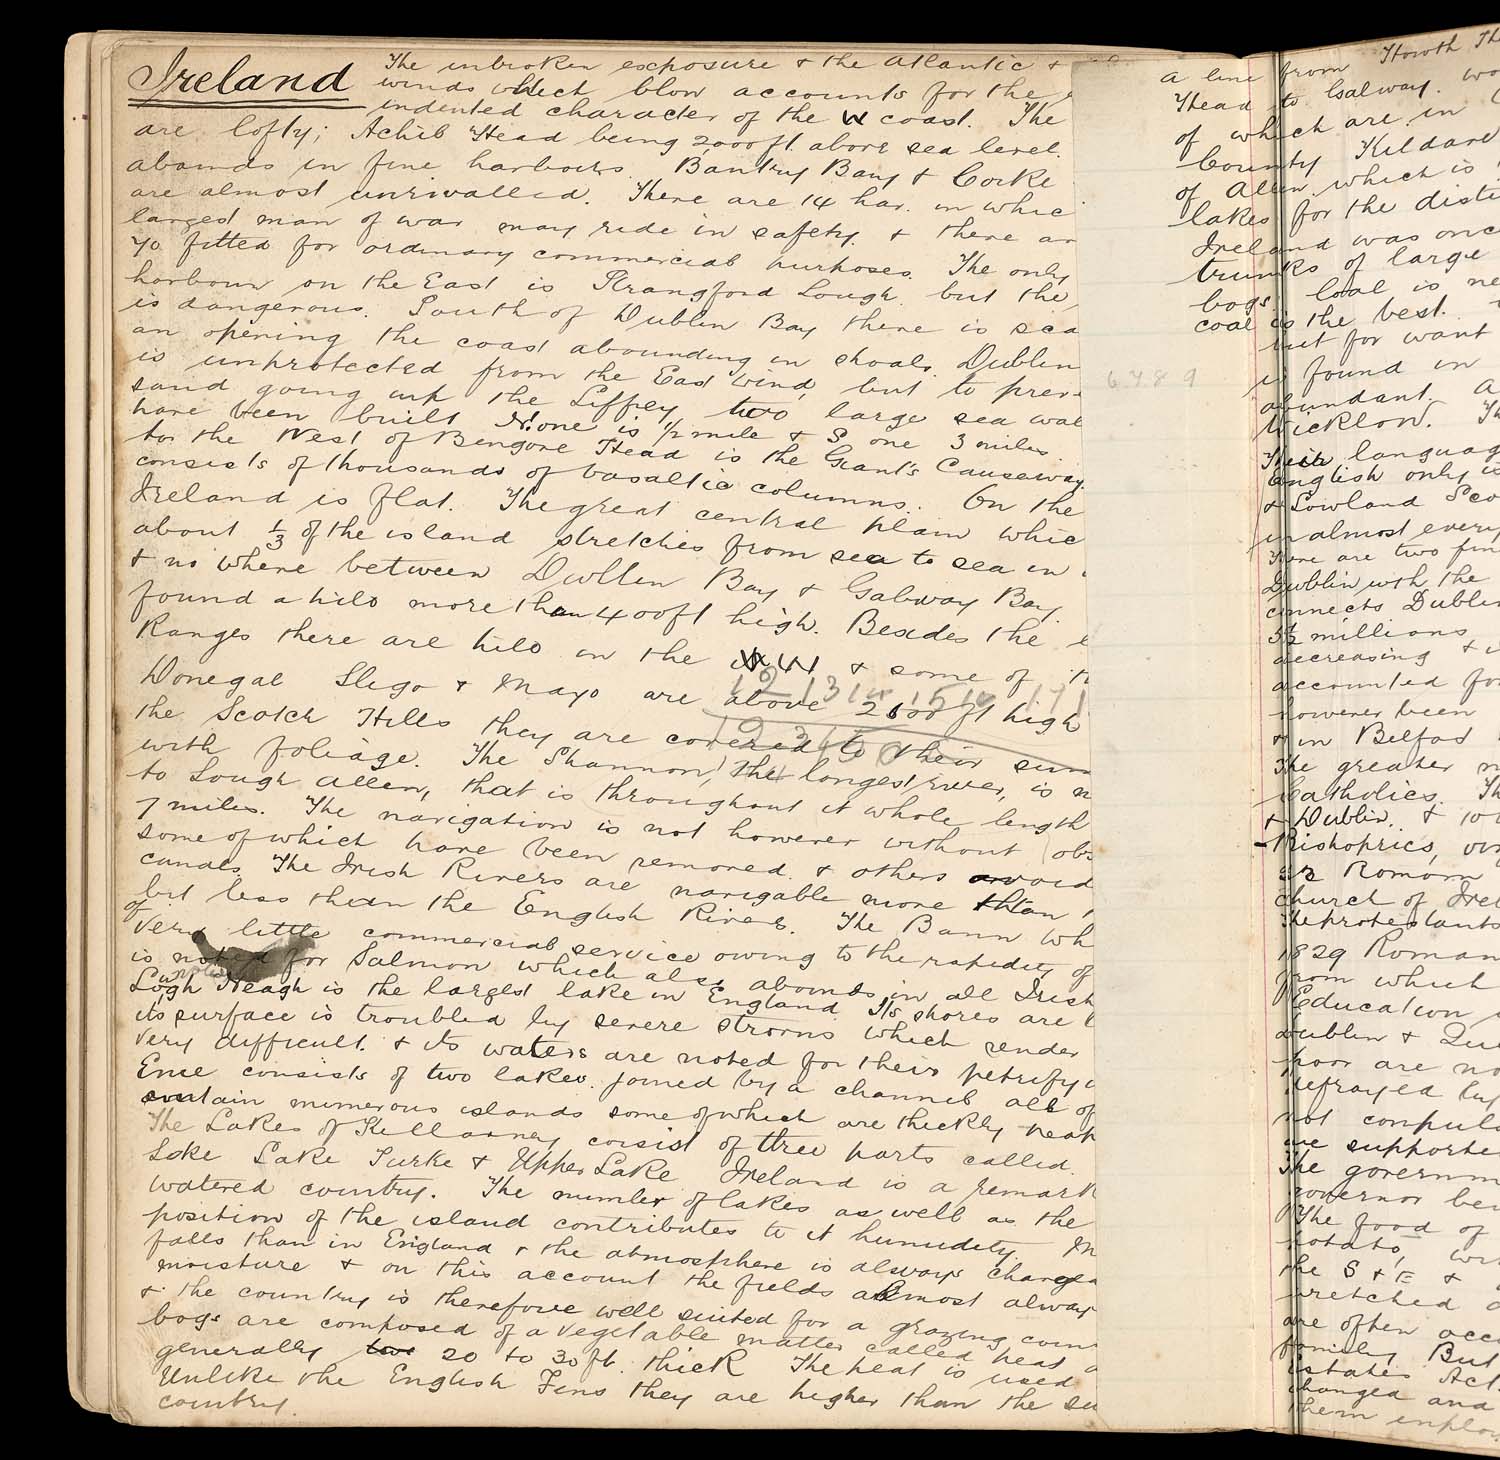 Ireland
The unbroken exposure + the Atlantic +
winds which blow accounts for the
indented character of the W coast. The
are lofty; Achil Head being 2000ft above sea level.
abounds in fine harbours. Bantry Bay + Corke
are almost unrivalled. There are 14 har. in whic
largest man of war may ride in safety. + there ar
70 fitted for ordinary commercial purposes. The only
harbour on the East is Strangford Lough. but the
is dangerous. South of Dublin Bay there is sca
an opening the coast abounding in shoals. Dublin
is unprotected from the East wind, but to prev
sand going up the Liffey, two large sea wal
have been built N. one is 1/2 mile + S one 3 miles.
to the West of Bengore Head is the Giant's Causeway.
consists of thousands of basaltic columns. On the
Ireland is flat. The great central plain whic
about 1/3 of the island stretches from sea to sea in
+ no where between Dublin Bay + Galway Bay
found a hill more than 400ft high. Besides the
Ranges there are hills in the NW + some of
12 13 14 15 16 17 1
Donegal Sligo + Mayo are above 2000 ft high
the Scotch Hills they are covered to their sum
with foliage. The Shannon, the longest river, is n
to Lough Allen, that is throughout it whole length
7 miles. The navigation is not however without obs
some of which have been removed. + others avoid
canals. The Irish Rivers are navigable more than
but less than the English Rivers. The Bann wh
of very little commercial service owing to the rapidity of
is noted for Salmon which also abounds in all Irish
Lough Neagh is the largest lake in England Its shores are l
its surface is troubled by severe stroms which render
very difficult. + its waters are noted for their petrify
Erne consists of two lakes. joined by a channel all of
contain numerous islands some of which are thickly
The Lakes of Killarney consist of three parts called.
Loke Lake Turke + Upper Lake Ireland is a remark
watered country. The number of lakes as well as the
position of the island contributes to it humidity. M
falls than in England + the atmosphere is always charge
moisture + on this account the fields almost alway
+ the country is therefore well suited for a grazing coun
bogs are composed of a vegetable matter called peat
generally 20 to 30 ft. thick The peat is used
Unlike the English Fens they are higher than the su
country.
6 7 8 9
a line from Howth Th
Head to Galway. wo
of which are in
County Kildare
of Allen which is
lakes for the disti
Ireland was once
trunks of large
bogs. Coal is ne
coal is the best.
but for want
is found in
abundant. A
Wicklow. Th
Their languag
English only is
+ Lowland Sco
in almost every
There are two fin
Dublin with the
connects Dublin
5 1/2 millions,
decreasing +
accounted fo
however been
+ in Belfas
The greater n
Catholics. Th
+ Dublin. + 10
Bishoprics, ov
Romom
Church of Irel
The protestants
1829 Roman
from which
Education
Dublin + Que
poor are no
defrayed by
not compuls
are supporte
The governm
governor bei
The food of
potato, wi
the S + E +
wretched
are often occu
family. But
estates Act
changed and
them emplo